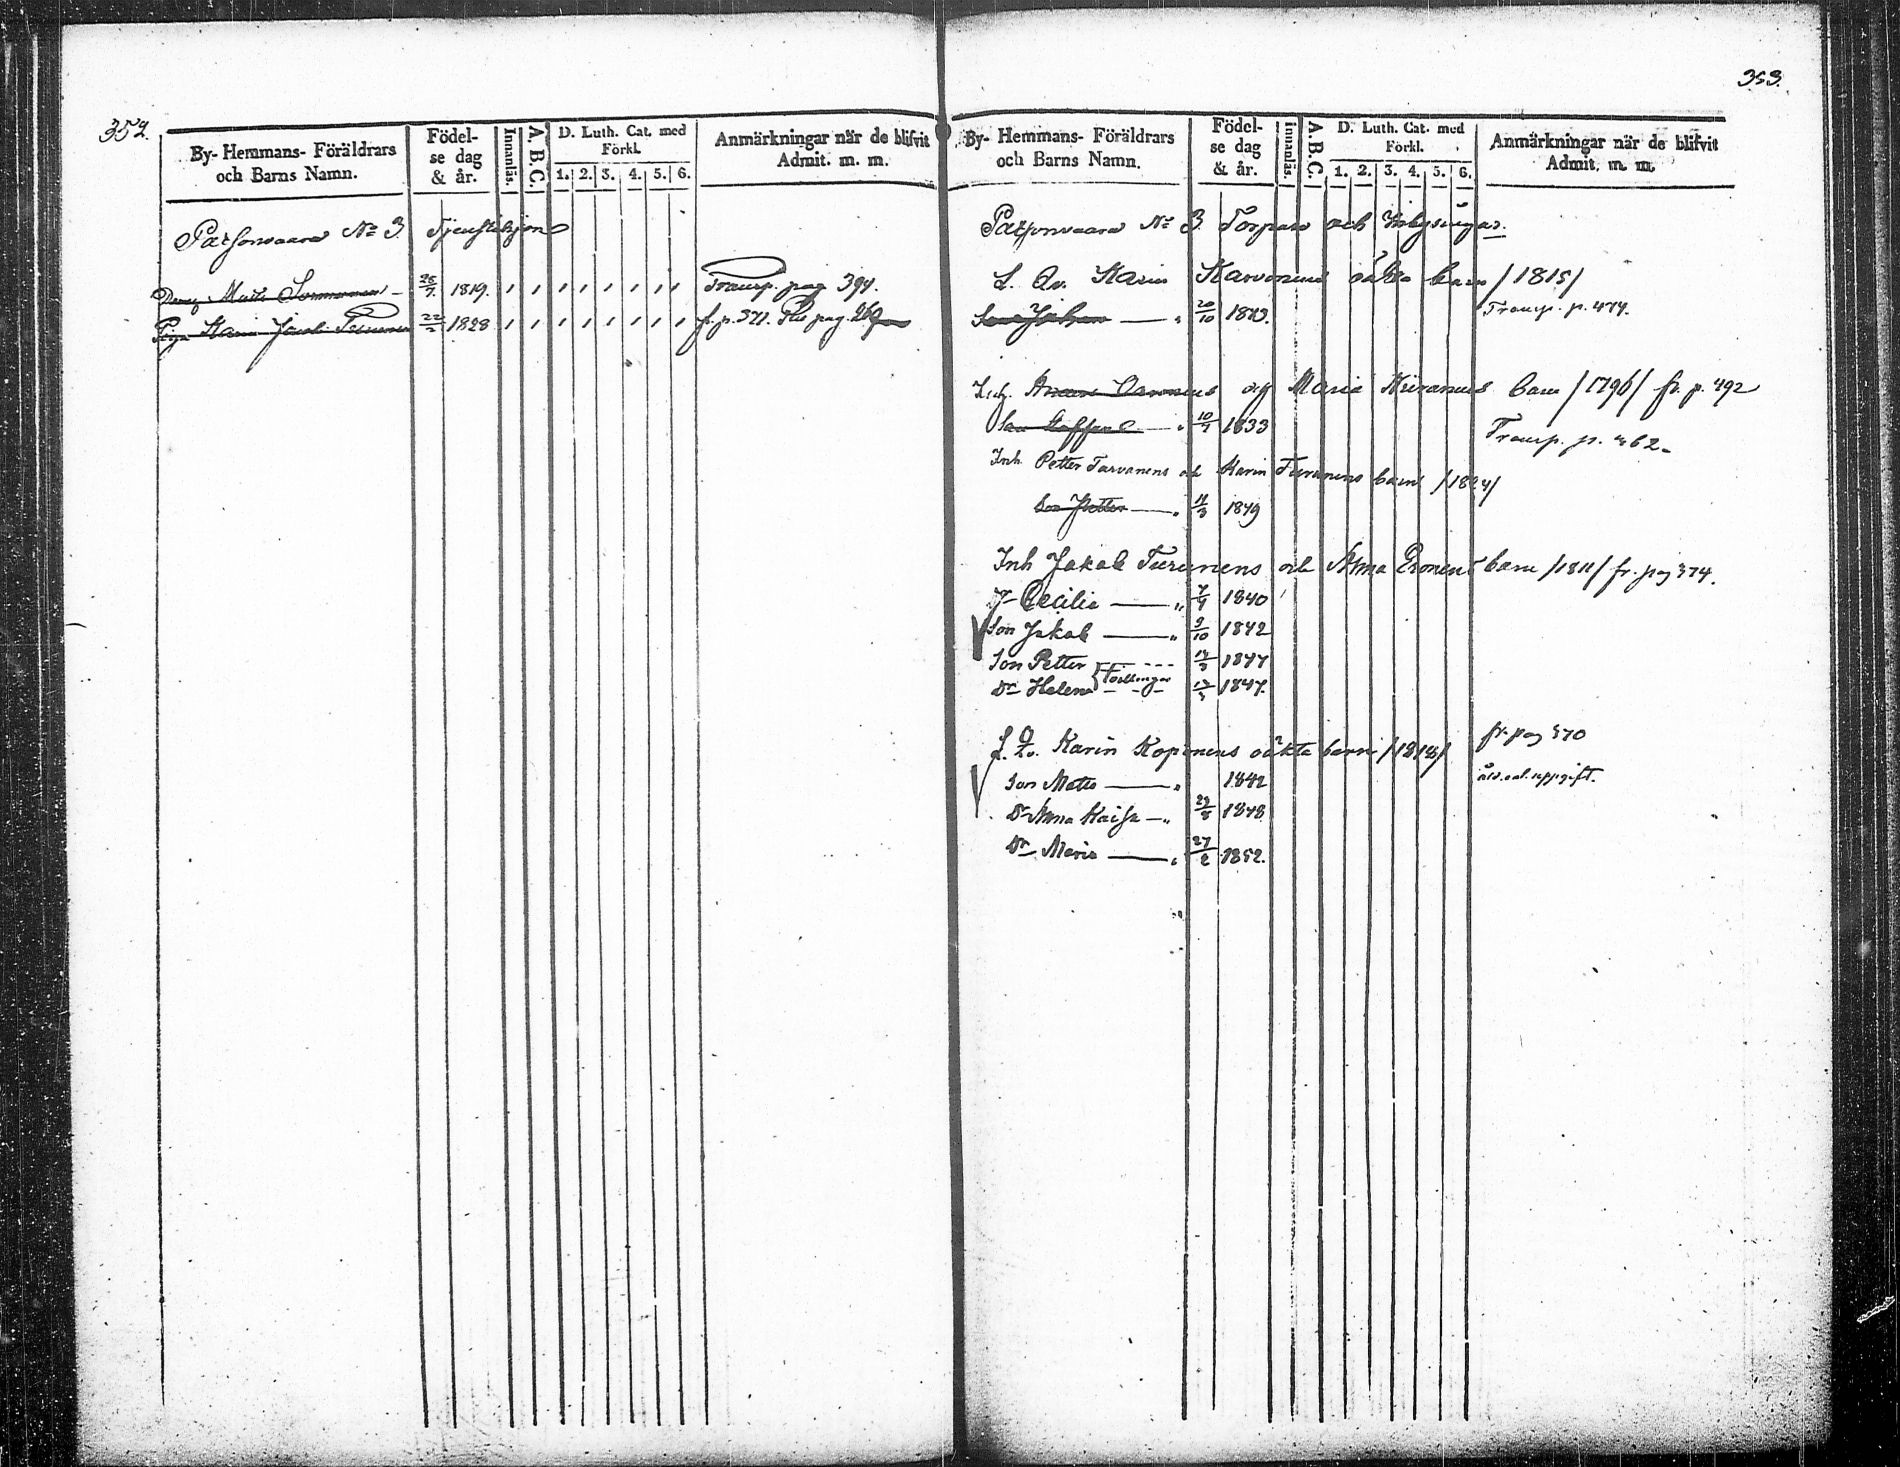 352.
By- Hemmans- Föräldrars
och Barns Namn.
Födel-
se dag
& år.
Innanläs.
A. B. C.
D. Luth. Cat. med
Förkl.
1. 2. 3. 4. 5. 6.
Anmärkningar när de blifvit
Admit. m. m.
Parsonvaara No 3. Tjenstehjon
Dreng Matts 25/7 1819. Transp. pag 394.
Piga Maria 1828 fr. p. 371. pag. 269
353.
By- Hemmans- Föräldrars
och Barns Namn.
Födel-
se dag
& år.
innanläs.
A. B. C.
D. Luth. Cat. med
Förkl.
1. 2. 3. 4. 5. 6.
Anmärkningar när de blifvit
Admit. m. m.
Parsonvaara No 3. Torpare och Inhysingar.
L. Qv. Karin Karvonens oäkta barn /1815/
Son Johan — " 20/10 1843. Transp. p. 474.
Inh. och Maria barn /1796/ fr. p. 492
Son Staffan — " 10/7 1833 Transp. p. 462.
Inh. Petter Tarvanens och Karin Turunens barn /1824/
Son Petter — " 11/3 1849
Inh Jakob Turunens och Anna Eronens barn /1811/ fr. pag 374.
Dr Cecilia — " 7/4 1840
Son Jakob — " 9/10 1842
Son Petter 1847
Dr Helena } Tvillingar 1847.
L. Qv. Karin Koponens oäkta barn /1818/ fr. pag 370
Son Matts — " 1842 uppgift.
Dr Anna Kaisa — " 1848
Dr Maria — " 27/2 1852.